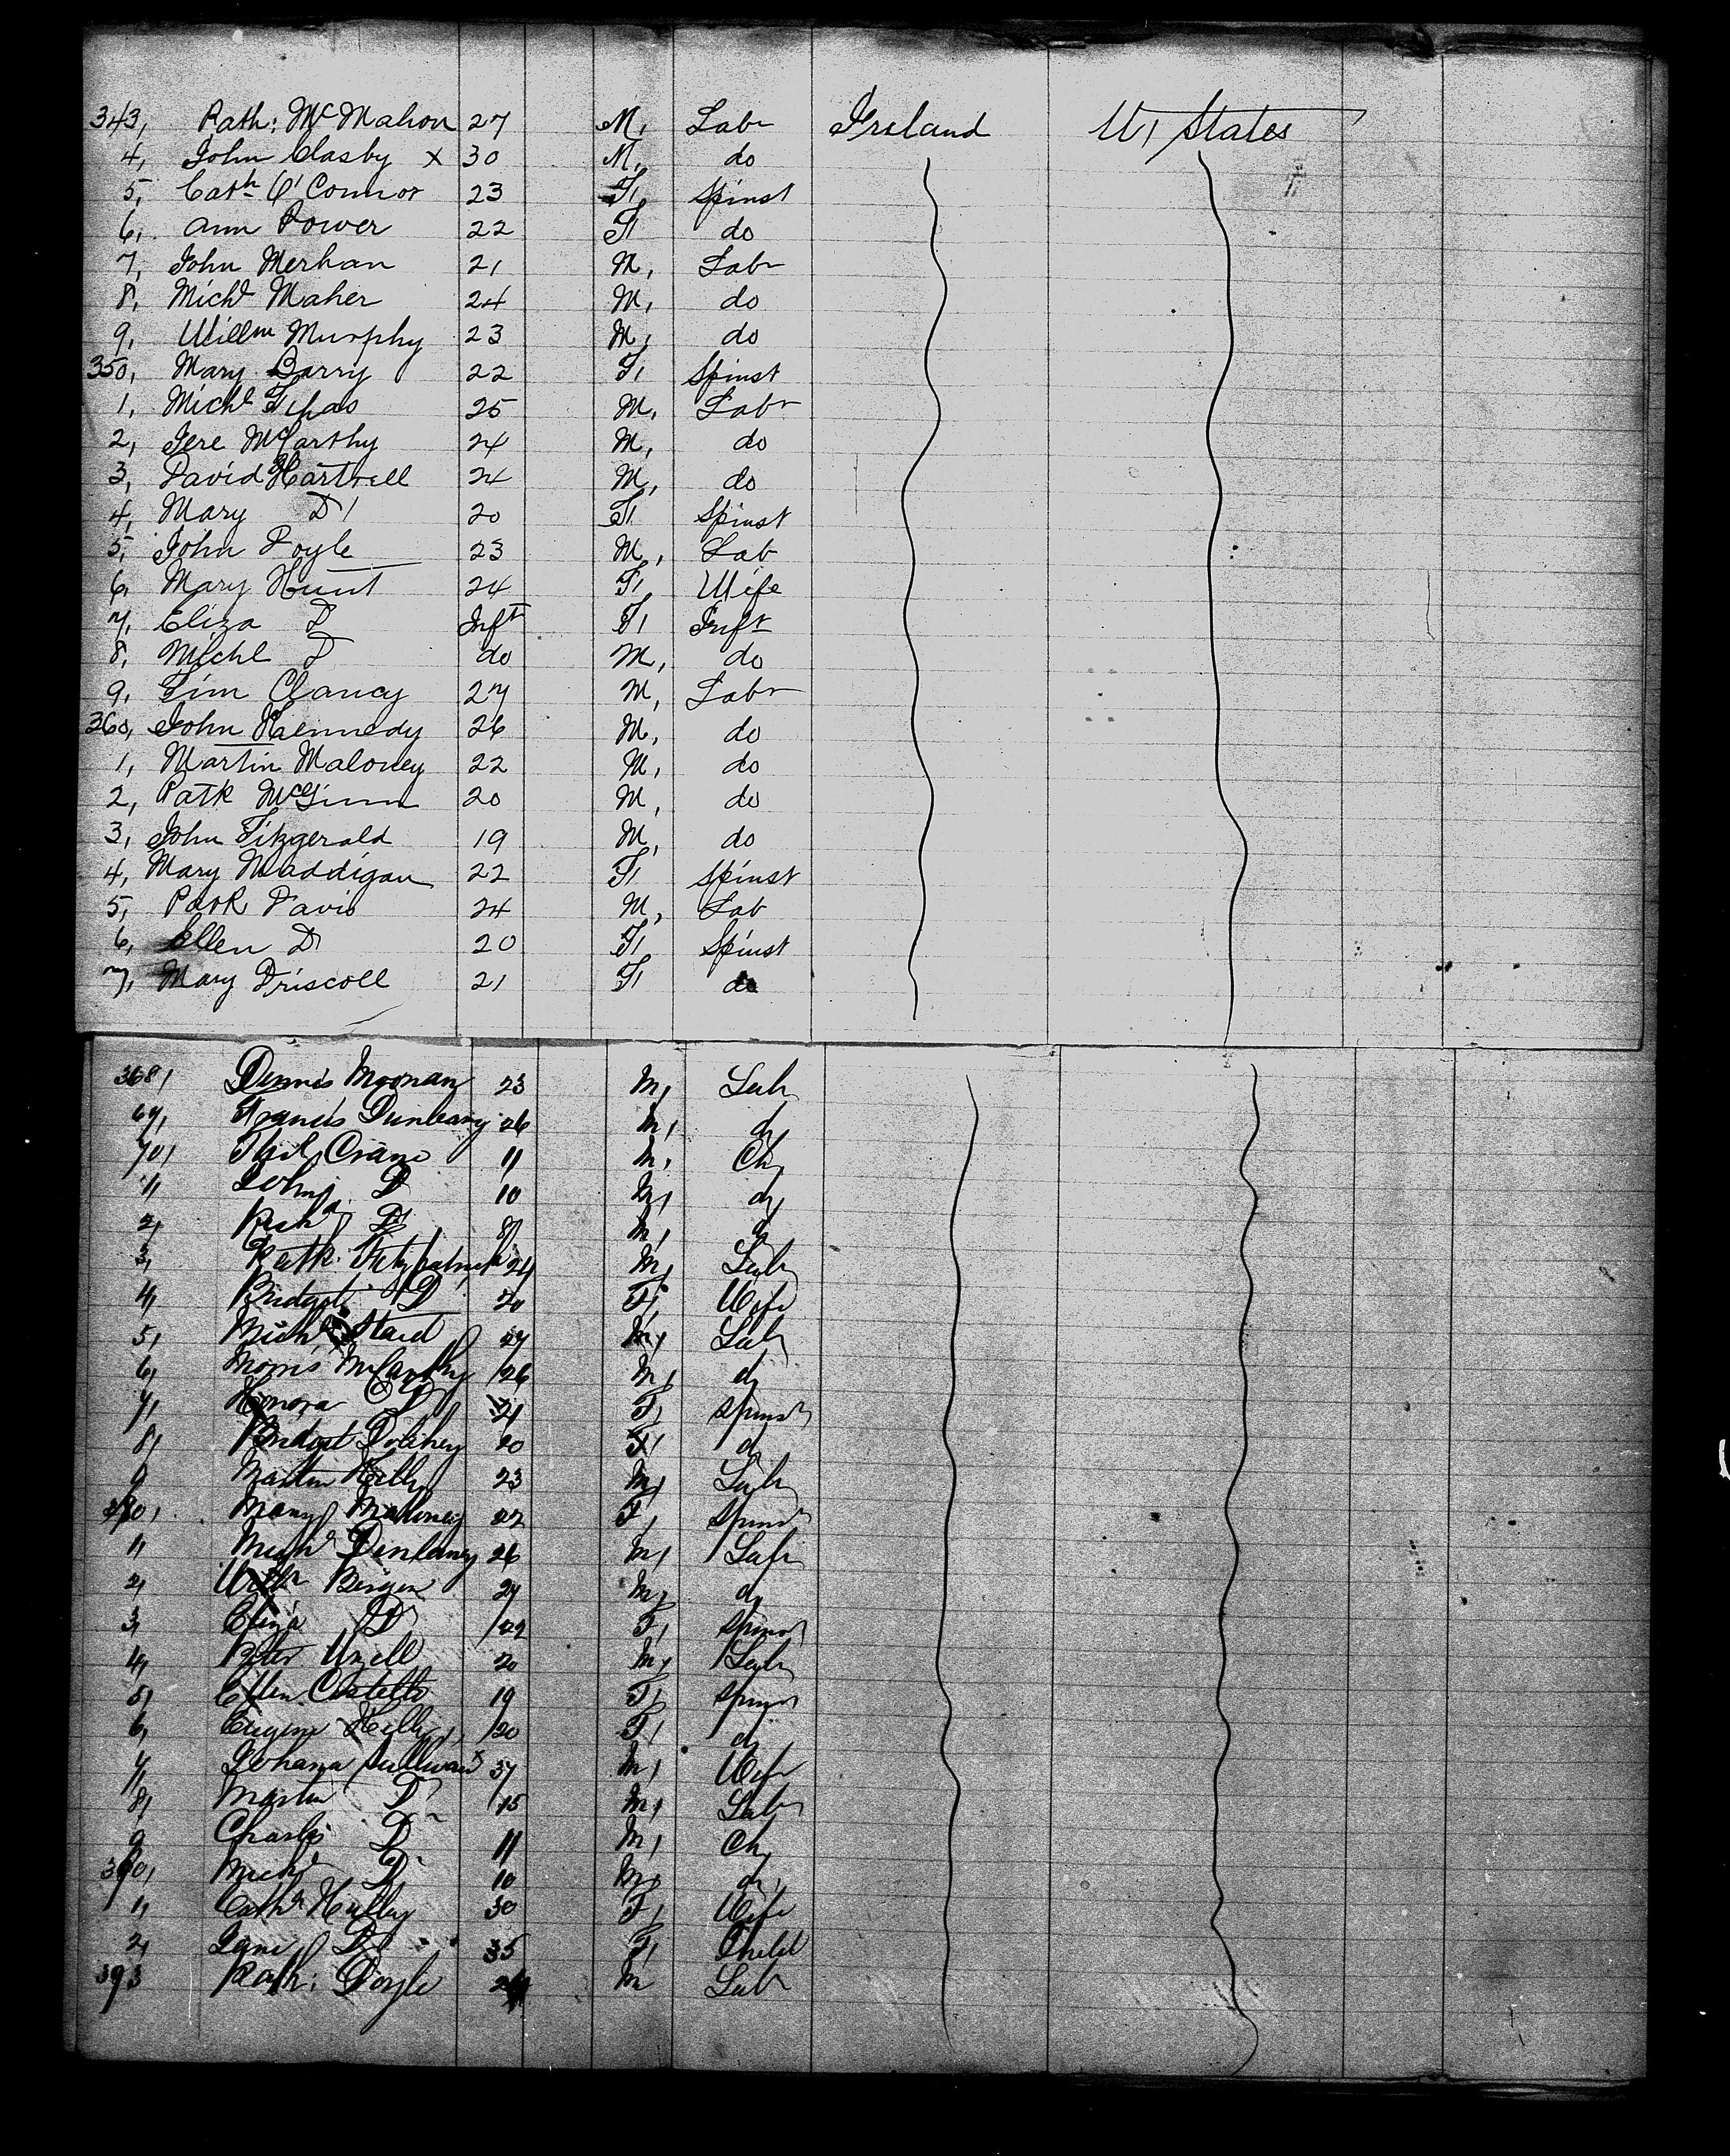 343, Path: McMahon 27 M, Labr Ireland U, States
4, John Clasby x 30 M, do
5, Cath O'Connor 23 F, Spinst
6, Ann Power 22 F, do
7, John Merhan 21 M, Labr
8, Michl Maher 24 M, do
9, Willm Murphy 23 M, do
350, Mary Barry 22 F, Spinst
1, Michl 25 M, Labr
2, Jere McCarthy 24 M, do
3, David Hartnell 24 M, do
4, Mary D, 20 F, Spinst
5, John Doyle 23 M, Lab
6, Mary Hunt 24 F, Wife
7, Eliza D Inft F, Inft
8, Michl D do M, do
9, Tim Clancy 27 M, Labr
360, John Kennedy 26 M, do
1, Martin Maloney 22 M, do
2, Patk McGinn 20 M, do
3, John Fitzgerald 19 M, do
4, Mary Maddigan 22 F, Spinst
5, Patk Davis 24 M, Lab
6, Ellen D, 20 F, Spinst
7, Mary Driscoll 21 F, do
368, Dennis Moonan 23 M, Lab
69, Francis Dunleavy 26 M, d,
70, Phil Crane 11 M, Ch,
1, John D 10 M, d,
2, Richd D 8 M, d,
3, Patk Fitzpatrick 24 M, Lab
4, Bridget D 20 F, Wife
5, Michl 27 M, Lab
6, Morris McCarthy 26 M, d,
7, Honora D 21 F, Spinst
8, Bridget 20 F, d,
9 Martin Kelly 23 M, Lab
380, Mary Maloney 22 F, Spinst
1, Michl 26 M, Lab
2, Bergen 27 M, d,
3, Eliza D 22 F, Spinst
4, Peter 20 M, Lab
5, Ellen Costello 19 F, Spinst
6, Eugene Kelly 20 F, d,
7, Johana Sullivan x 37 M, Wife
8, Martin D 15 M, Lab
9 Charles D 11 M, Ch,
390, Michl D 10 M, d,
1, Cath 30 F, Wife
2, Jane D 35 F, Child
393 Path: Doyle M Lab